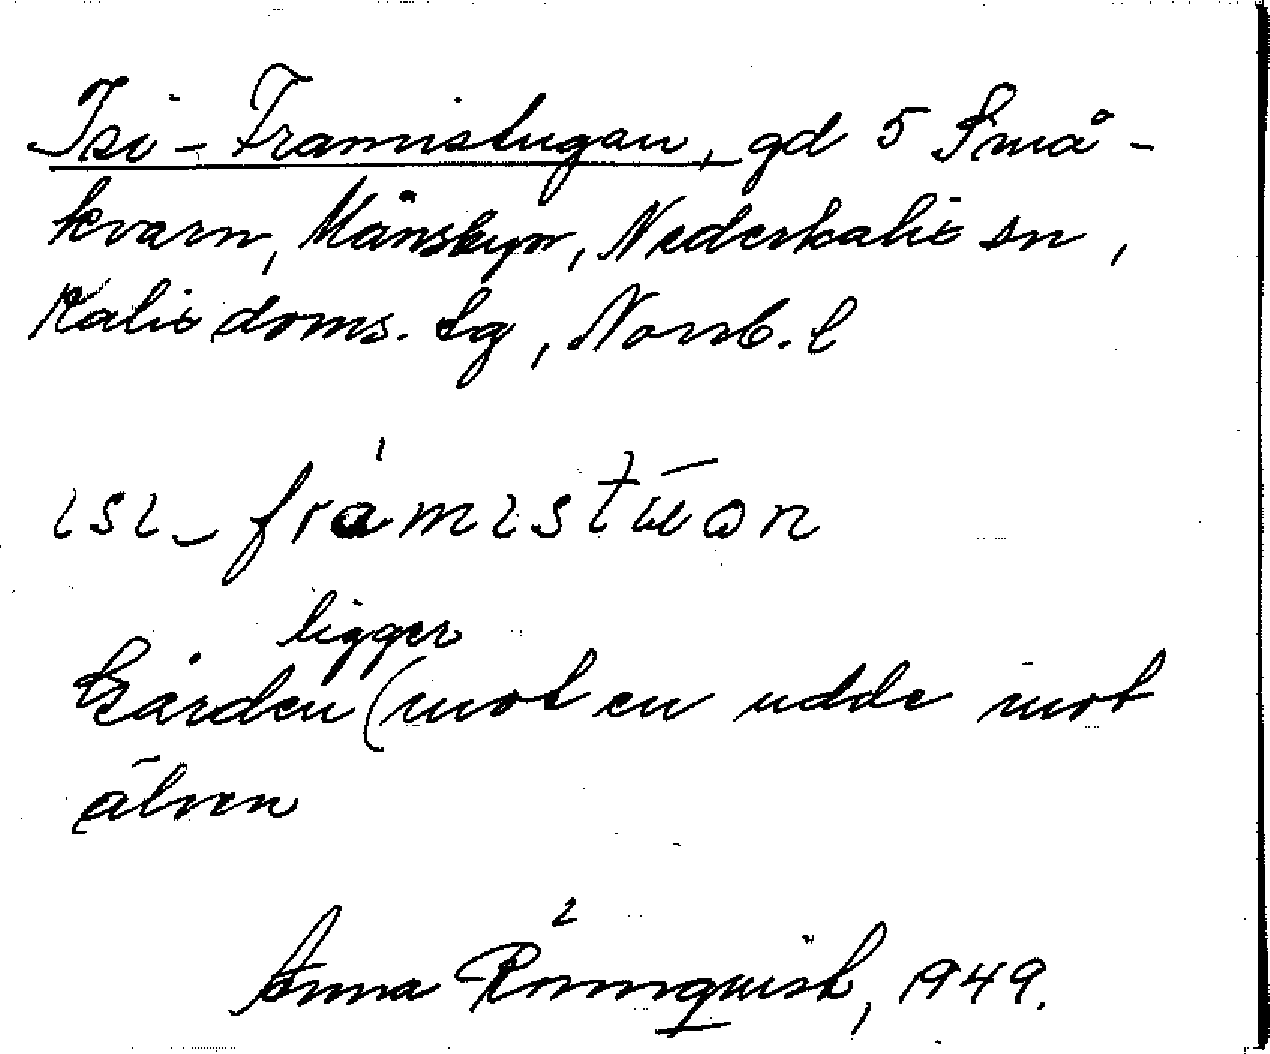 Isi-Framistugan, gd 5 Små-
kvarn, Månsbyn, Nederkalix sn,
Kalix doms. tg, Norrb. l
ısı-framıstuən
ligger
Gården (mot en udde mot
älven
Anna Rönnquist, 1949.